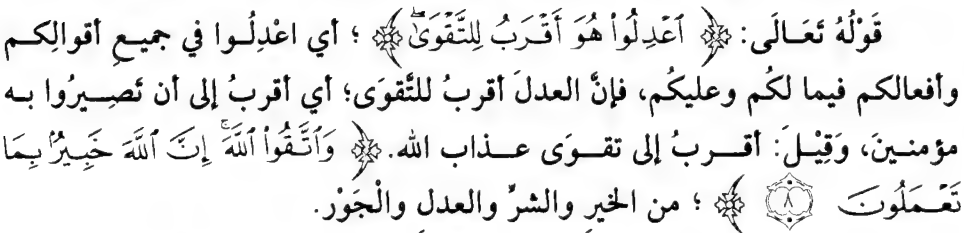 قَوْلُهُ تَعَالَى: ﴿ ٱعْدِلُوا۟ هُوَ أَقْرَبُ لِلتَّقْوَىٰۖ ﴾ ؛ أي اعْدِلُوا في جميعِ أقوالِكم
وأفعالكم فيما لكُم وعليكُم، فإنَّ العدلَ أقربُ للتَّقوَى؛ أي أقربُ إلى أن تَصِيرُوا به
مؤمنينَ، وَقِيْلَ: أقربُ إلى تقوَى عذاب الله. ﴿ وَٱتَّقُوا۟ ٱللَّهَۚ إِنَّ ٱللَّهَ خَبِيرٌۢ بِمَا
تَعْمَلُونَ ٨ ﴾ ؛ من الخيرِ والشرِّ والعدلِ والْجَوْرِ.